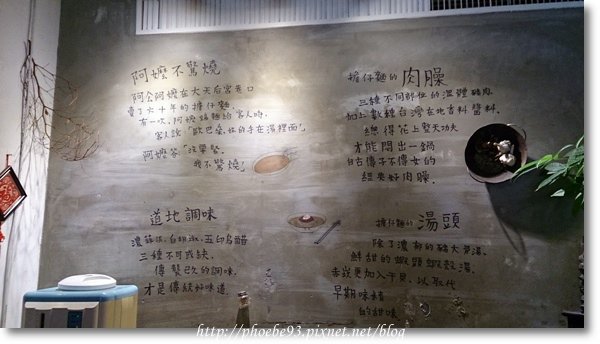 阿嬤不驚燒
阿公阿嬤在大天后宮巷口
賣了六十年的擔仔麵
有一次,阿嬤端麵給客人時,
客人說「歐巴桑,妳的手在湯裡面」,
阿嬤答「沒要緊,
我不驚燒」
道地調味
三種不可或缺,
傳襲已久的調味,
才是傳統好味道
擔仔麵的 肉臊
三種不同部位的溫體豬肉
加上數種台灣在地香料醬料,
總得花上整天功夫
才能悶出一鍋
自古傳子不傳女的
經典好肉臊.
擔仔麵的 湯頭
除了濃郁的豬大骨湯,
鮮甜的蝦頭蝦殼湯,
去崁更加入干貝,以取代
早期味精
的甜味
http://phoebe93.pixnet.net/blog